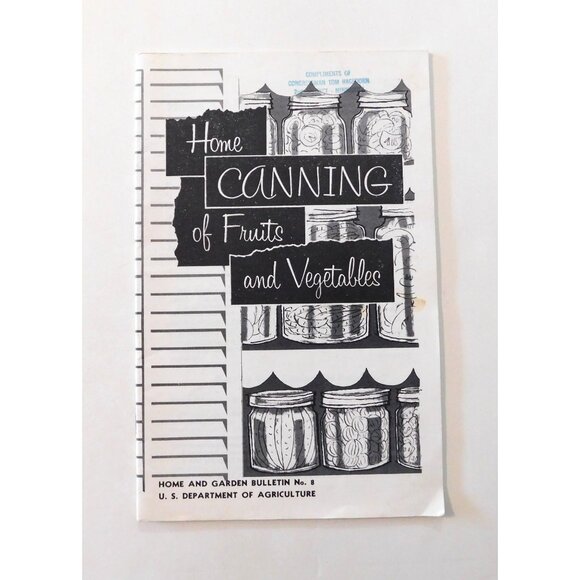 COMPLIMENTS OF
CONGRESSMAN TOM HAGEDORN
Home
CANNING
of Fruits
and Vegetables
HOME AND GARDEN BULLETIN No. 8
U. S. DEPARTMENT OF AGRICULTURE